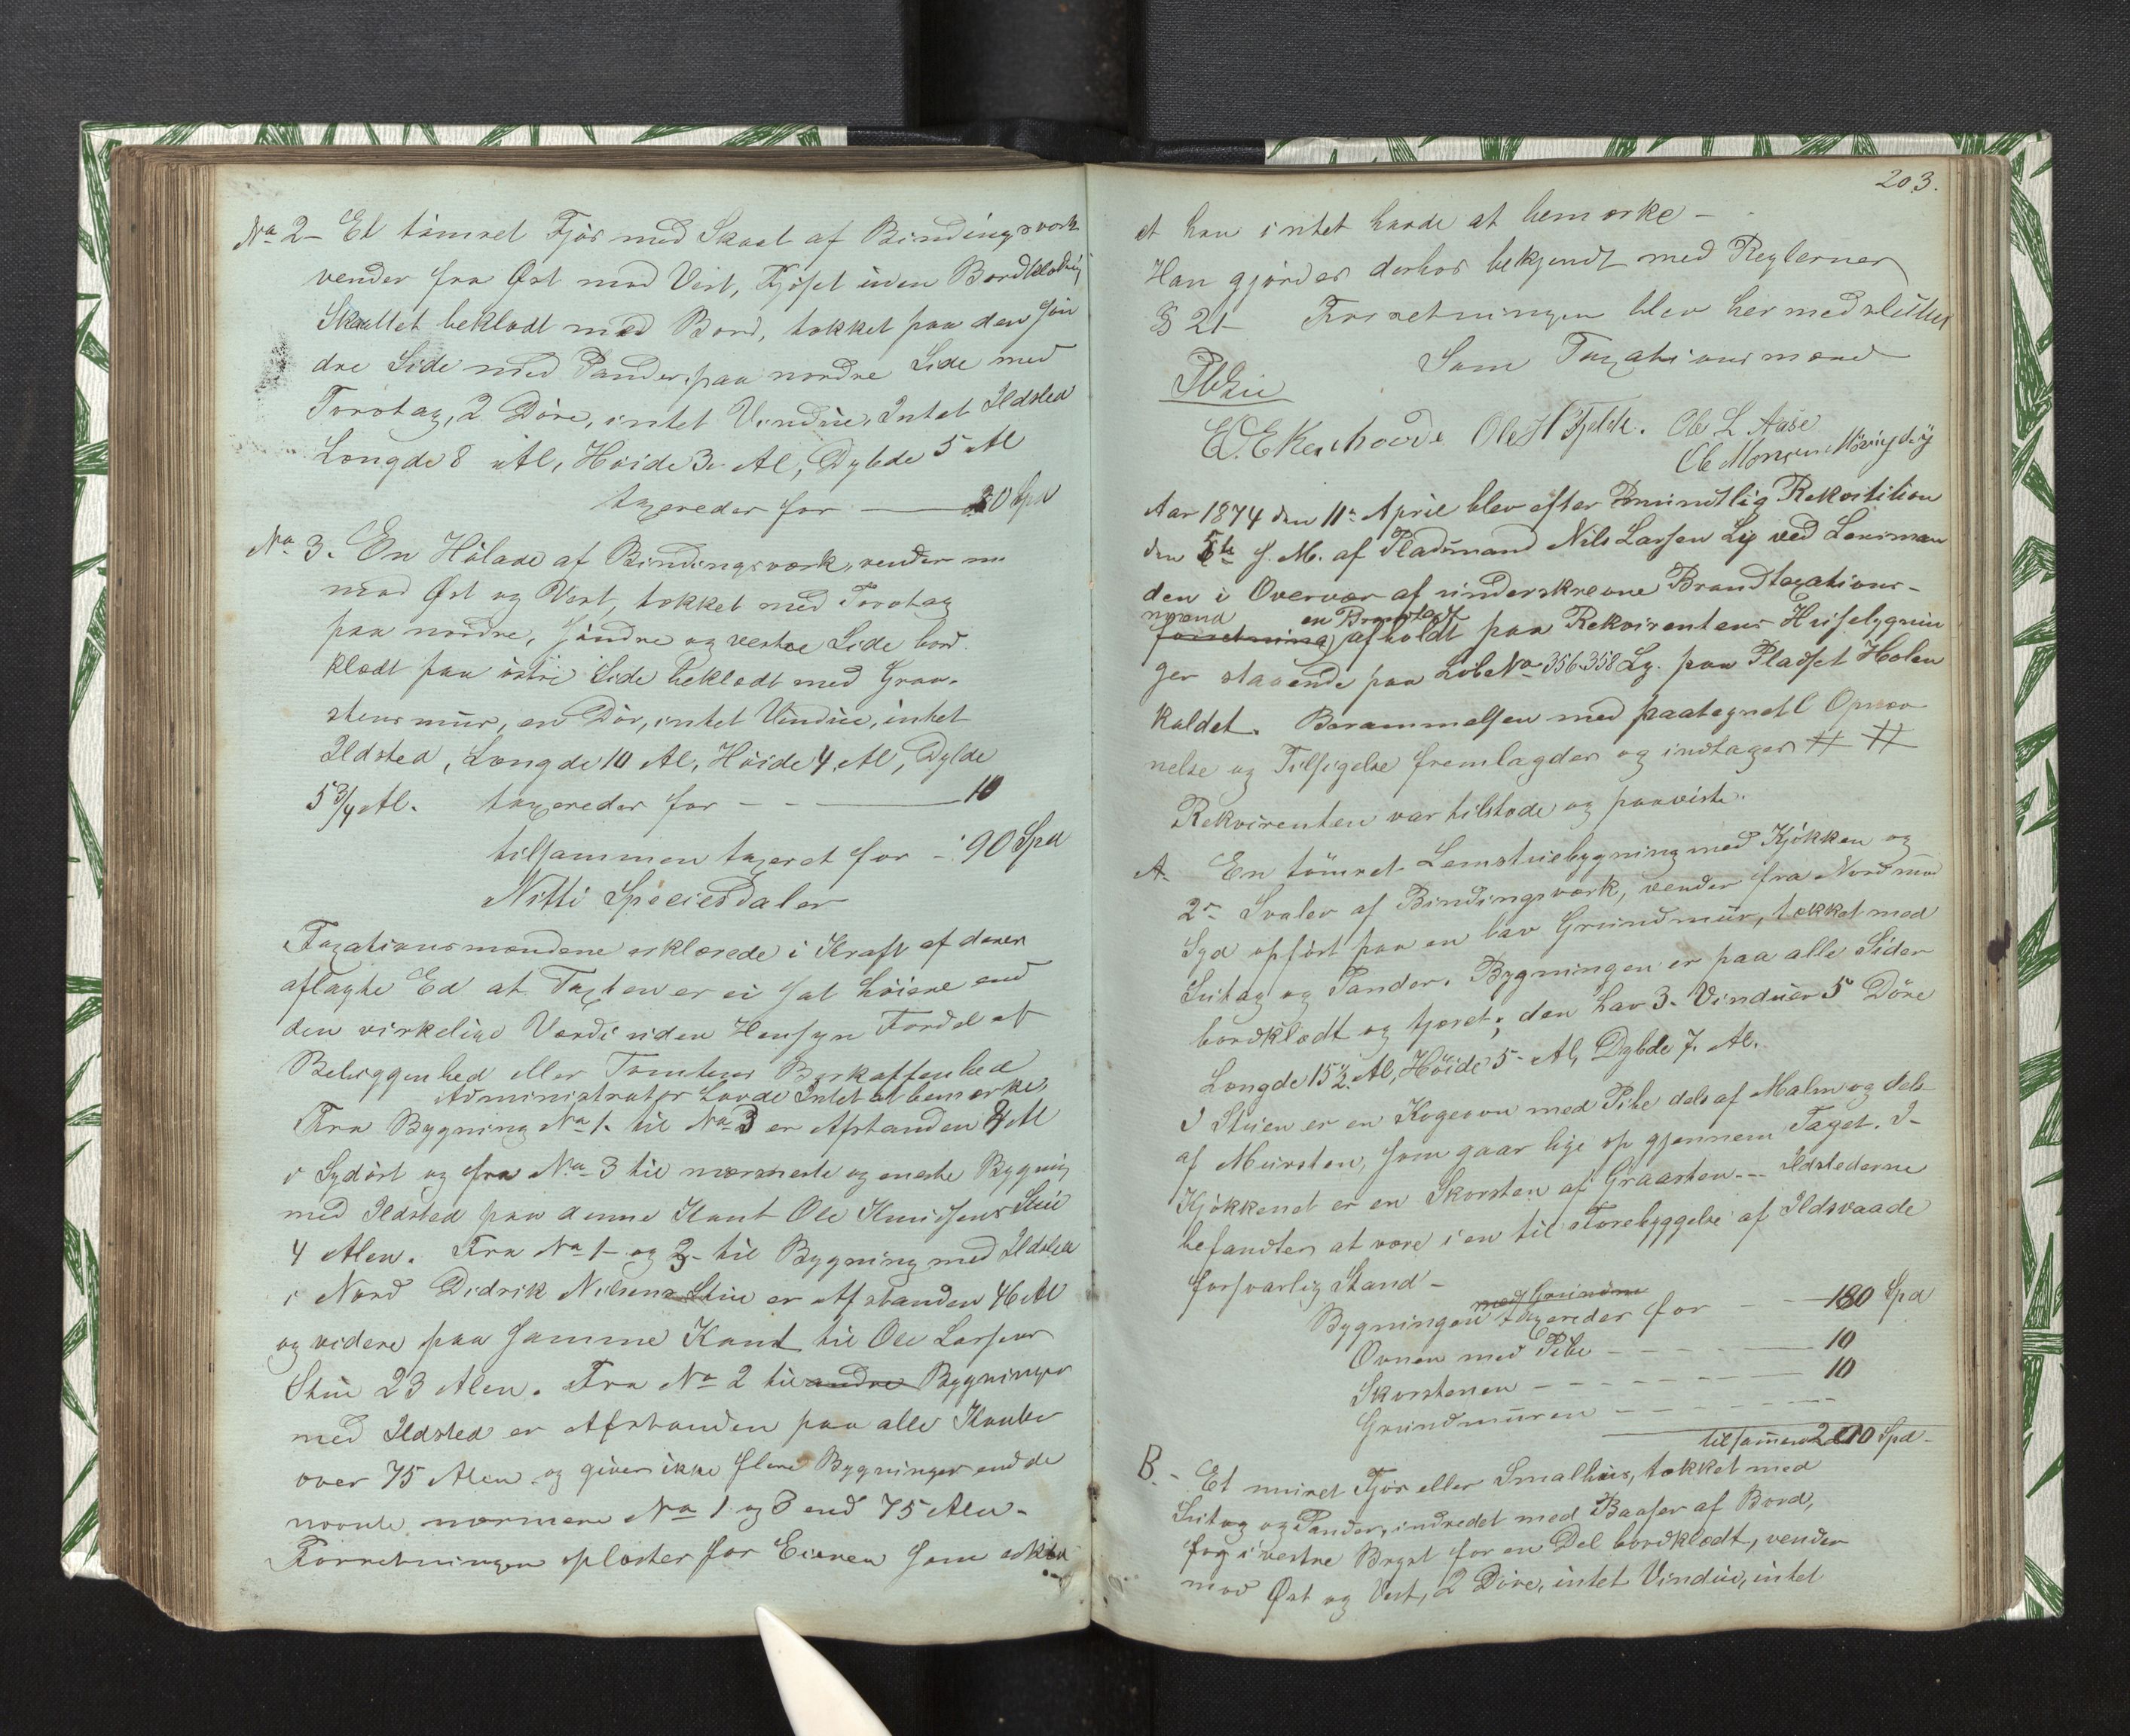 No 2 - Et tømret Fjøs med Skaal af Bindingsværk
vender fra Øst mod Vest, Fjøset uden Bordklædnig
Skaallet beklædt med Bord, tækket paa den søn
dre Side med Pander, paa nordre Side med
Torvtag, 2 Døre, intet Vindue, Intet Ildsted
Længde 8 Al, Høide 3 Al, Dybde 5 Al
taxeredes for — 20 Spd
No 3. En Hølade af Bindingsværk, vender
mod Øst og Vest, tækket med Torvtag
paa nordre, søndre og vestre Side bord
klædt paa østre Side beklædt med Graa-
stens muur, en Dør, intet Vindue, intet
Ildsted, Længde 10 Al, Høide 4 Al, Dybde
5 3/4 Al. taxeredes for - - — 10
tilsammen taxeret for - 90 Spd
Nitti Speciesdaler
Taxationsmændene erklærede i Kraft af deres
aflagte Ed at Taxten er ei sat høiere end
den virkelige Værdi uden Hensyn Fordel af
Beliggenhed eller Tomtens Beskaffenhed
Administrator havde Intet at bemærke,
Fra Bygning No 1. til No 3 er Afstanden 8 Al
i Sydøst og fra No 3 til nærmeste og eneste Bygnig
med Ildsted paa denne Kant Ole Knudsens Stue
4 Alen. Fra No 1 - og 3 - til Bygning med Ildsted
i Nord Didrik Nilsens Stue er Afstanden 46 Al
og videre paa samme Kant til Ole Larsens
Stue 23 Alen. Fra No 2 til andre Bygninger
med Ildsted er Afstanden paa alle Kanter
over 75 Alen og gives ikke flere Bygninger end de
nævnte nærmere No 1 og 3 end 75 Alen -
Forretningen oplæstes for Eieren som erklæ
203.
at han intet havde at bemærke -
Han gjordes derhos bekjendt med Reglernes
§ 21 - Forretningen blev hermed sluttet
Som Taxationsmænd
Ole H Fjelde. Ole L Aase
Ole Monsen
Aar 1874 den 11te April blev efter mundtlig Rekvisition
den 5te s. M. af Pladsmand Nils Larsen Ly ved Lensman
den i Overvær af underskrevne Brandtaxations-
mænd en Brandtaxt
forretning afholdt paa Rekvirentens Husebygnin
ger staaende paa Løbe No 356.358 Ly. paa Pladset Holen
kaldet. Berammelsen med paategnet Opnæv
nelse og Tilsigelse fremlagdes og indtages # #
Rekvirenten var tilstede og paaviste.
A. En tømret Lemstuebygning med Kjøkken og
2de Svaler af Bindingsværk, vender fra Nord mod
Syd opført paa en lav Grundmuur, tækket med
Luitag og Pander. Bygningen er paa alle Sider
bordklædt og tjæret; den har 3 Vinduer 5 Døre
Længde 15 1/2 Al, Høide 5 Al, Dybde 7 Al.
I Stuen er en Kogeovn med Pibe dels af Malm og dels
af Mursten, som gaar lige op gjennem Taget. I -
Kjøkkenet er en Skorsten af Graasten. - - Ildstederne
befandtes at være i en til Forebyggelse af Ildsvaade
forsvarlig Stand -
med Grundm
Bygningen taxeredes for — 180 Spd
Ovnen med Pibe - - - - — 10
Skorstenen - - - - - - — 10
Grundmuren - - - - - -
tilsammen 200 Spd -
B. - Et muret Fjøs eller Smalhuus, tækket med
Luitag og Pander, indredet med Baaser af Bord,
og i vestre Bryst for en Del bordklædt, vender
mod Øst og Vest, 2 Døre, intet Vindue, intet